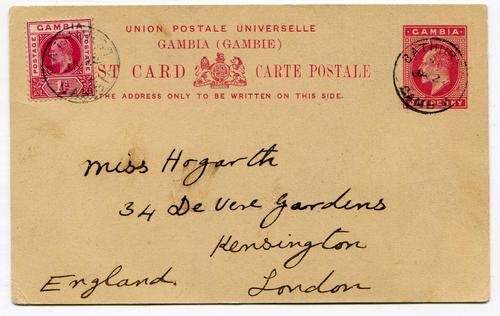 UNION POSTALE UNIVERSELLE
GAMBIA (GAMBIE)
POST CARD CARTE POSTALE
THE ADDRESS ONLY TO BE WRITTEN ON THIS SIDE.
GAMBIA
POSTAGE POSTAGE
1d
GAMBIA
ONE PENNY
Miss Hogarth
34 De Vere Gardens
Kensington
England. London